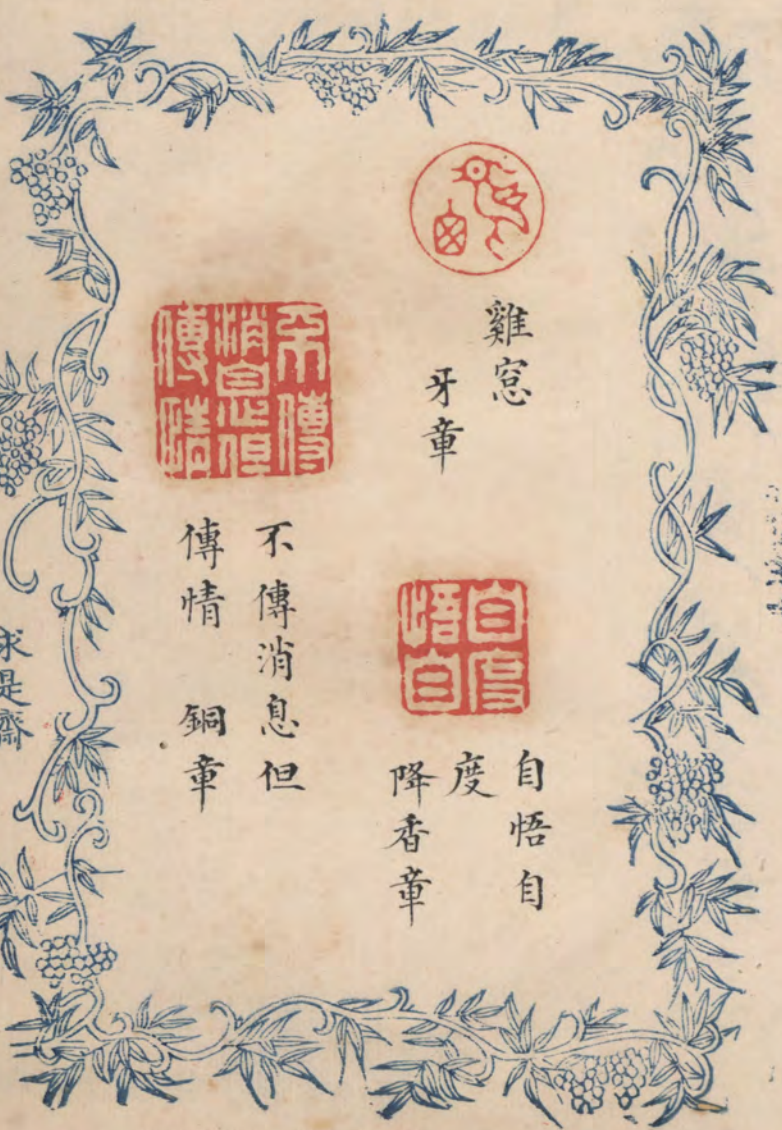 雞窓
牙章
自度
悟自
自悟自
度
降香章
不傳
消息但
傳情
不傳消息但
傳情 銅章
求是齋